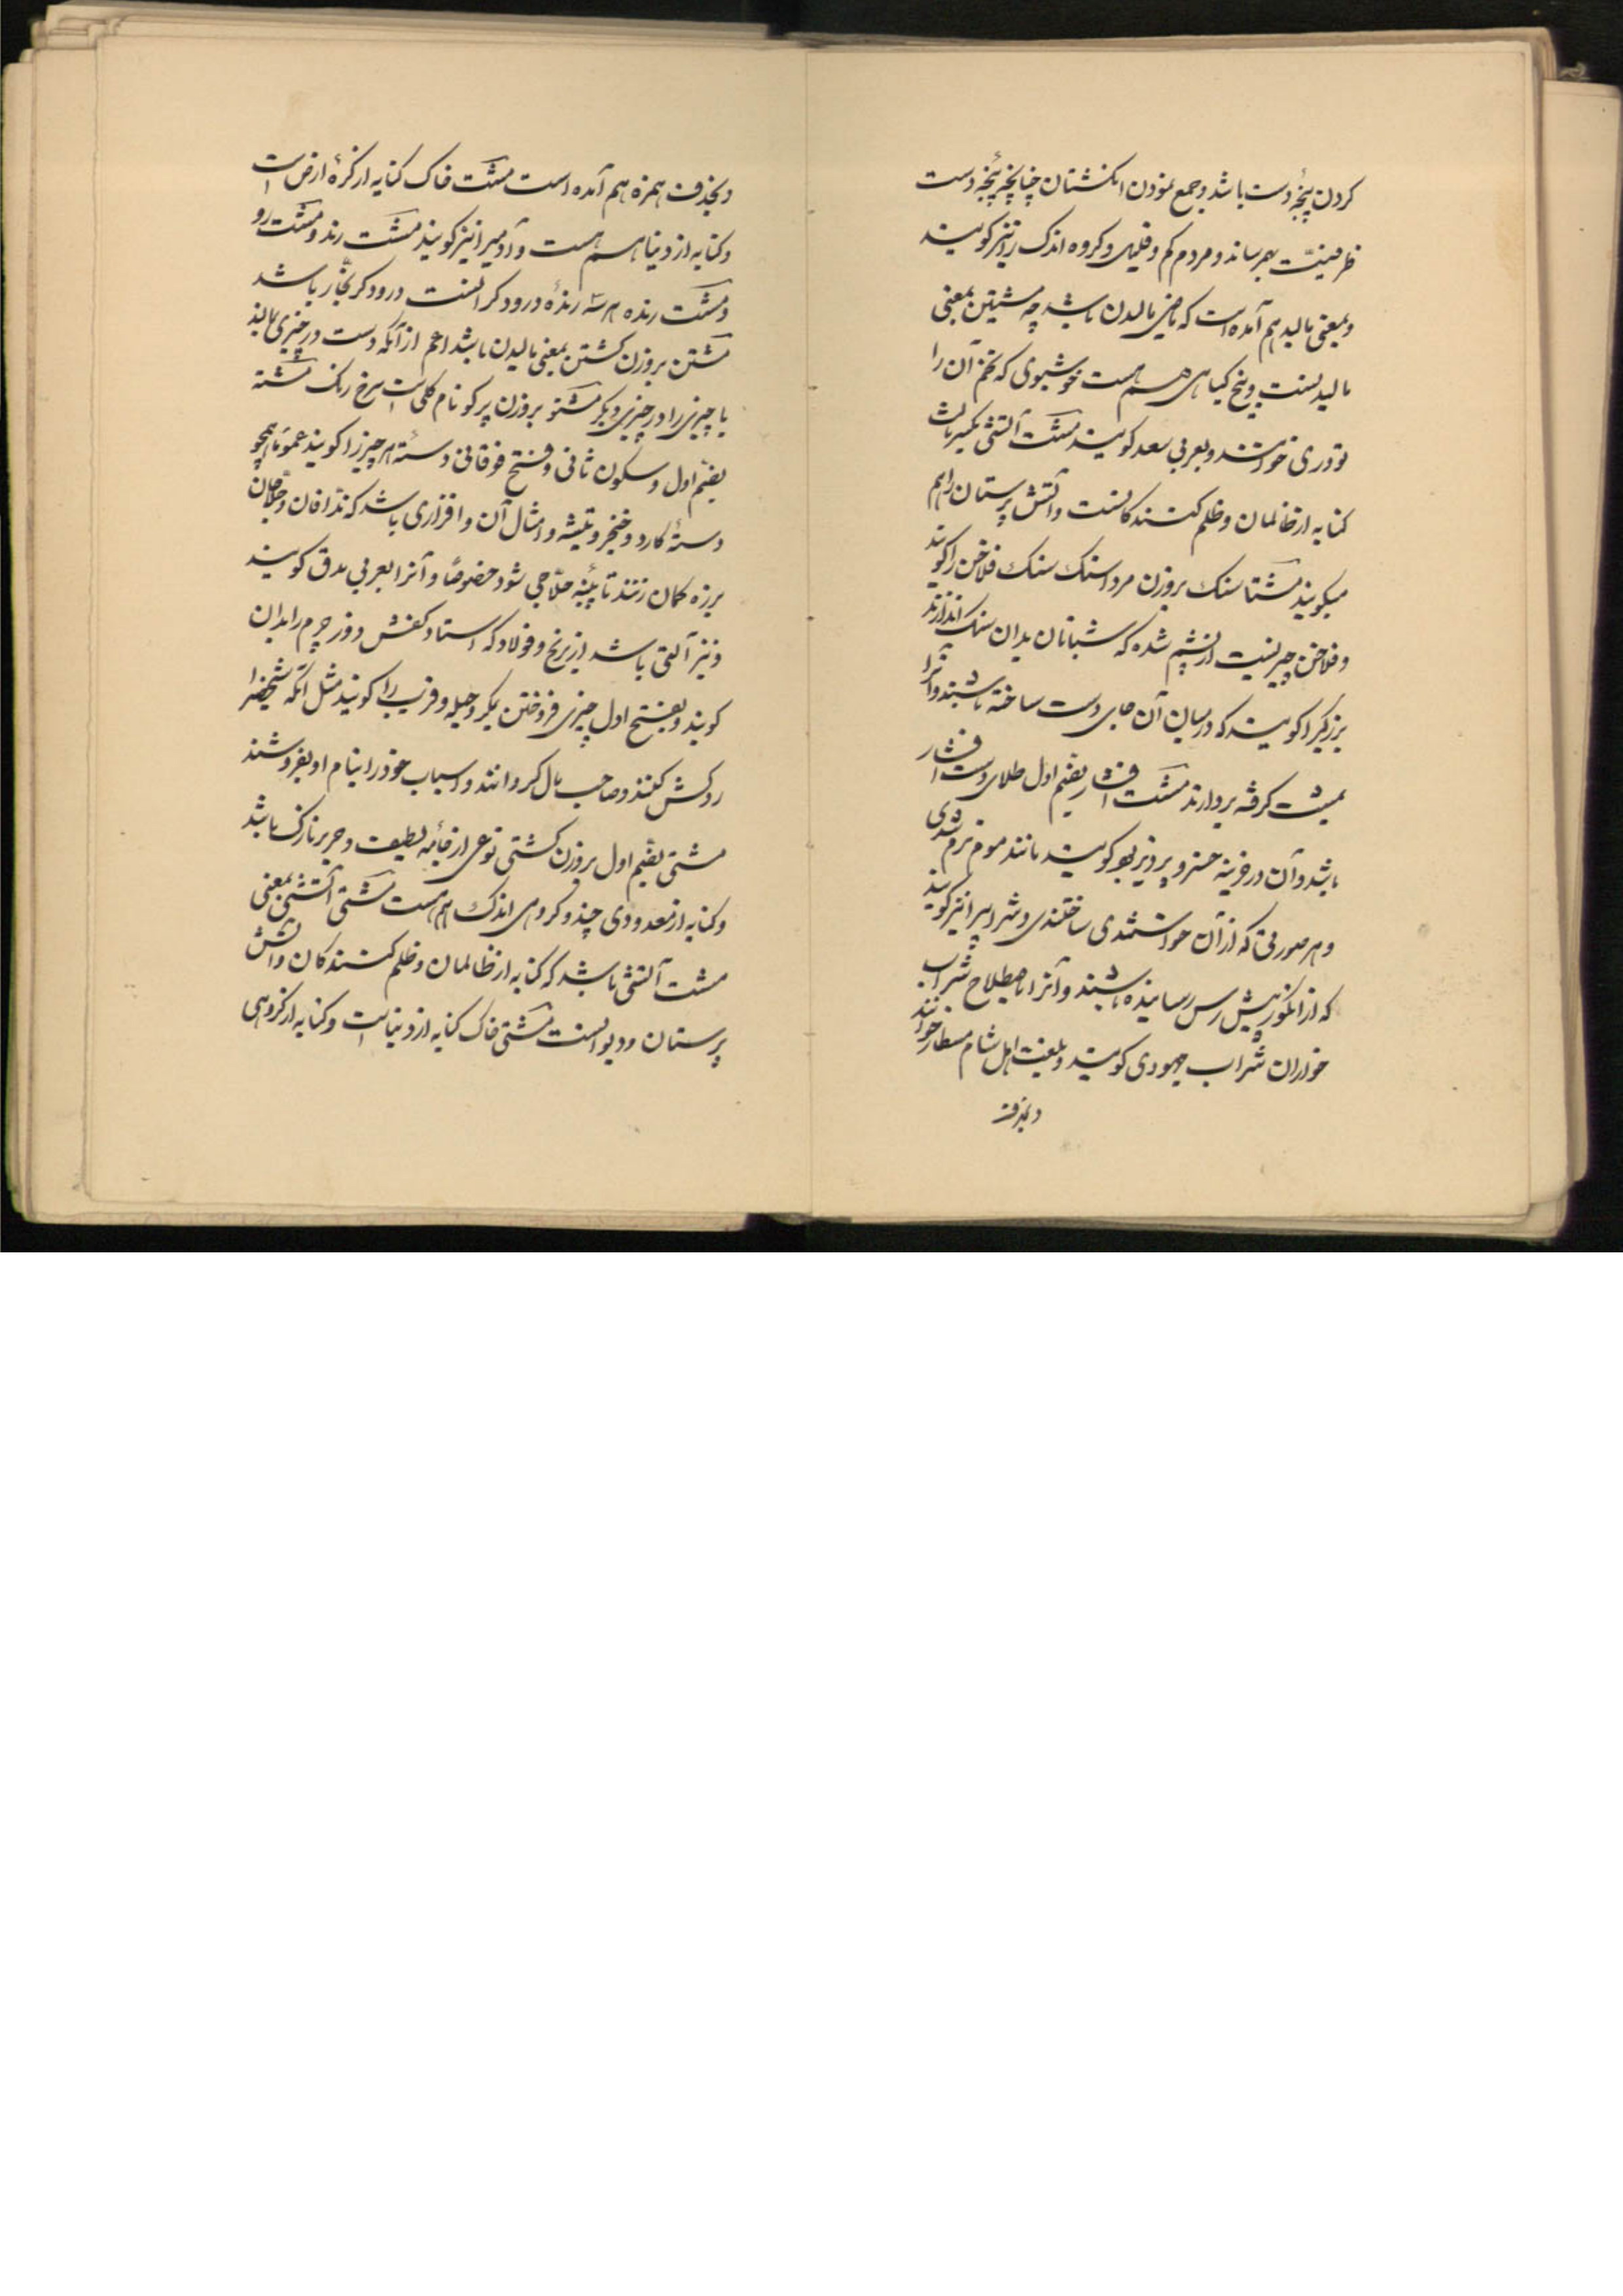 کردن پنجهٔ دست باشد و جمع نمودن انکشتان چنانچه پنجهٔ دست
ظرفیت بهم رساند و مردم کم و قلیل و کروه اندک را نیز کویند
و بمعنی مالید هم آمده است که ماضی مالیدن باشد چه مشتین بمعنی
مالیدنست و بیخ کیاهی هم هست خوشبوی که تخم آن را
تودری خوانند و بعربی سعد کویند مشت آتشی بکسر ثالث
کنایه از ظالمان و ظلم کنندکانست و آتش پرستان را هم
میکویند مشتاسنک بروزن مرداسنک سنک فلاخن را کویند
و فلاخن چیزیست از پشم شده که شبانان بدان سنک اندازند
بزرکیرا کویند که در میان آن جای دست ساخته باشند و آنرا
بمشت کرفته بردارند مشت افشار بضم اول طلای دست افشار
باشد و آن در خزینه خسرو پرویز بود کویند مانند موم نرم شدی
و هر صورتی که از آن خواستندی ساختندی و شرابیرا نیز کویند
که از انکور پیش رس رسانیده باشند و آنرا باصطلاح شراب
خواران شراب جهودی کویند و بلغت اهل شام مسطار خوانند
و بحذف
و بحذف همزه هم آمده است مشت خاک کنایه از کرهٔ ارض است
و کنایه از دنیا هم هست و آدمیرا نیز کویند مشت رند و مشت رو
و مشت رنده هر سه رندهٔ درودکرانست درودکر نجار باشد
مشتن بروزن کشتن بمعنی مالیدن باشد اعم از آنکه دست در چیزی مالند
یا چیزی را در چیزی دیکر مشتو بروزن پرکو نام کلی است سرخ رنک مشته
بضم اول و سکون ثانی و فتح فوقانی دستهٔ هر چیز را کویند عموما همچو
دستهٔ کارد و خنجر و تیشه و امثال آن و افزاری باشد که ندافان و حلاجان
بر زه کمان زنند تا پنبه حلاجی شود خصوصا و آنرا بعربی مدق کویند
و نیز آلتی باشد از برنج و فولاد که استاد کفش دوز چرم را بدان
کوبند و بفتح اول چیزی فروختن بمکر و حیله و فریب را کویند مثل آنکه شخصرا
روکش کنند و صاحب مال کردانند و اسباب خود را بنام او بفروشند
مشتی بضم اول بروزن کشتی نوعی از جامه لطیف و حریر نازک باشد
و کنایه از معدودی چند و کروهی اندک هم هست مشتی آتشی بمعنی
مشت آتشی باشد که کنایه از ظالمان و ظلم کنندکان و آتش
پرستان و دیوانست مشتی خاک کنایه از دنیا است و کنایه از کروهی